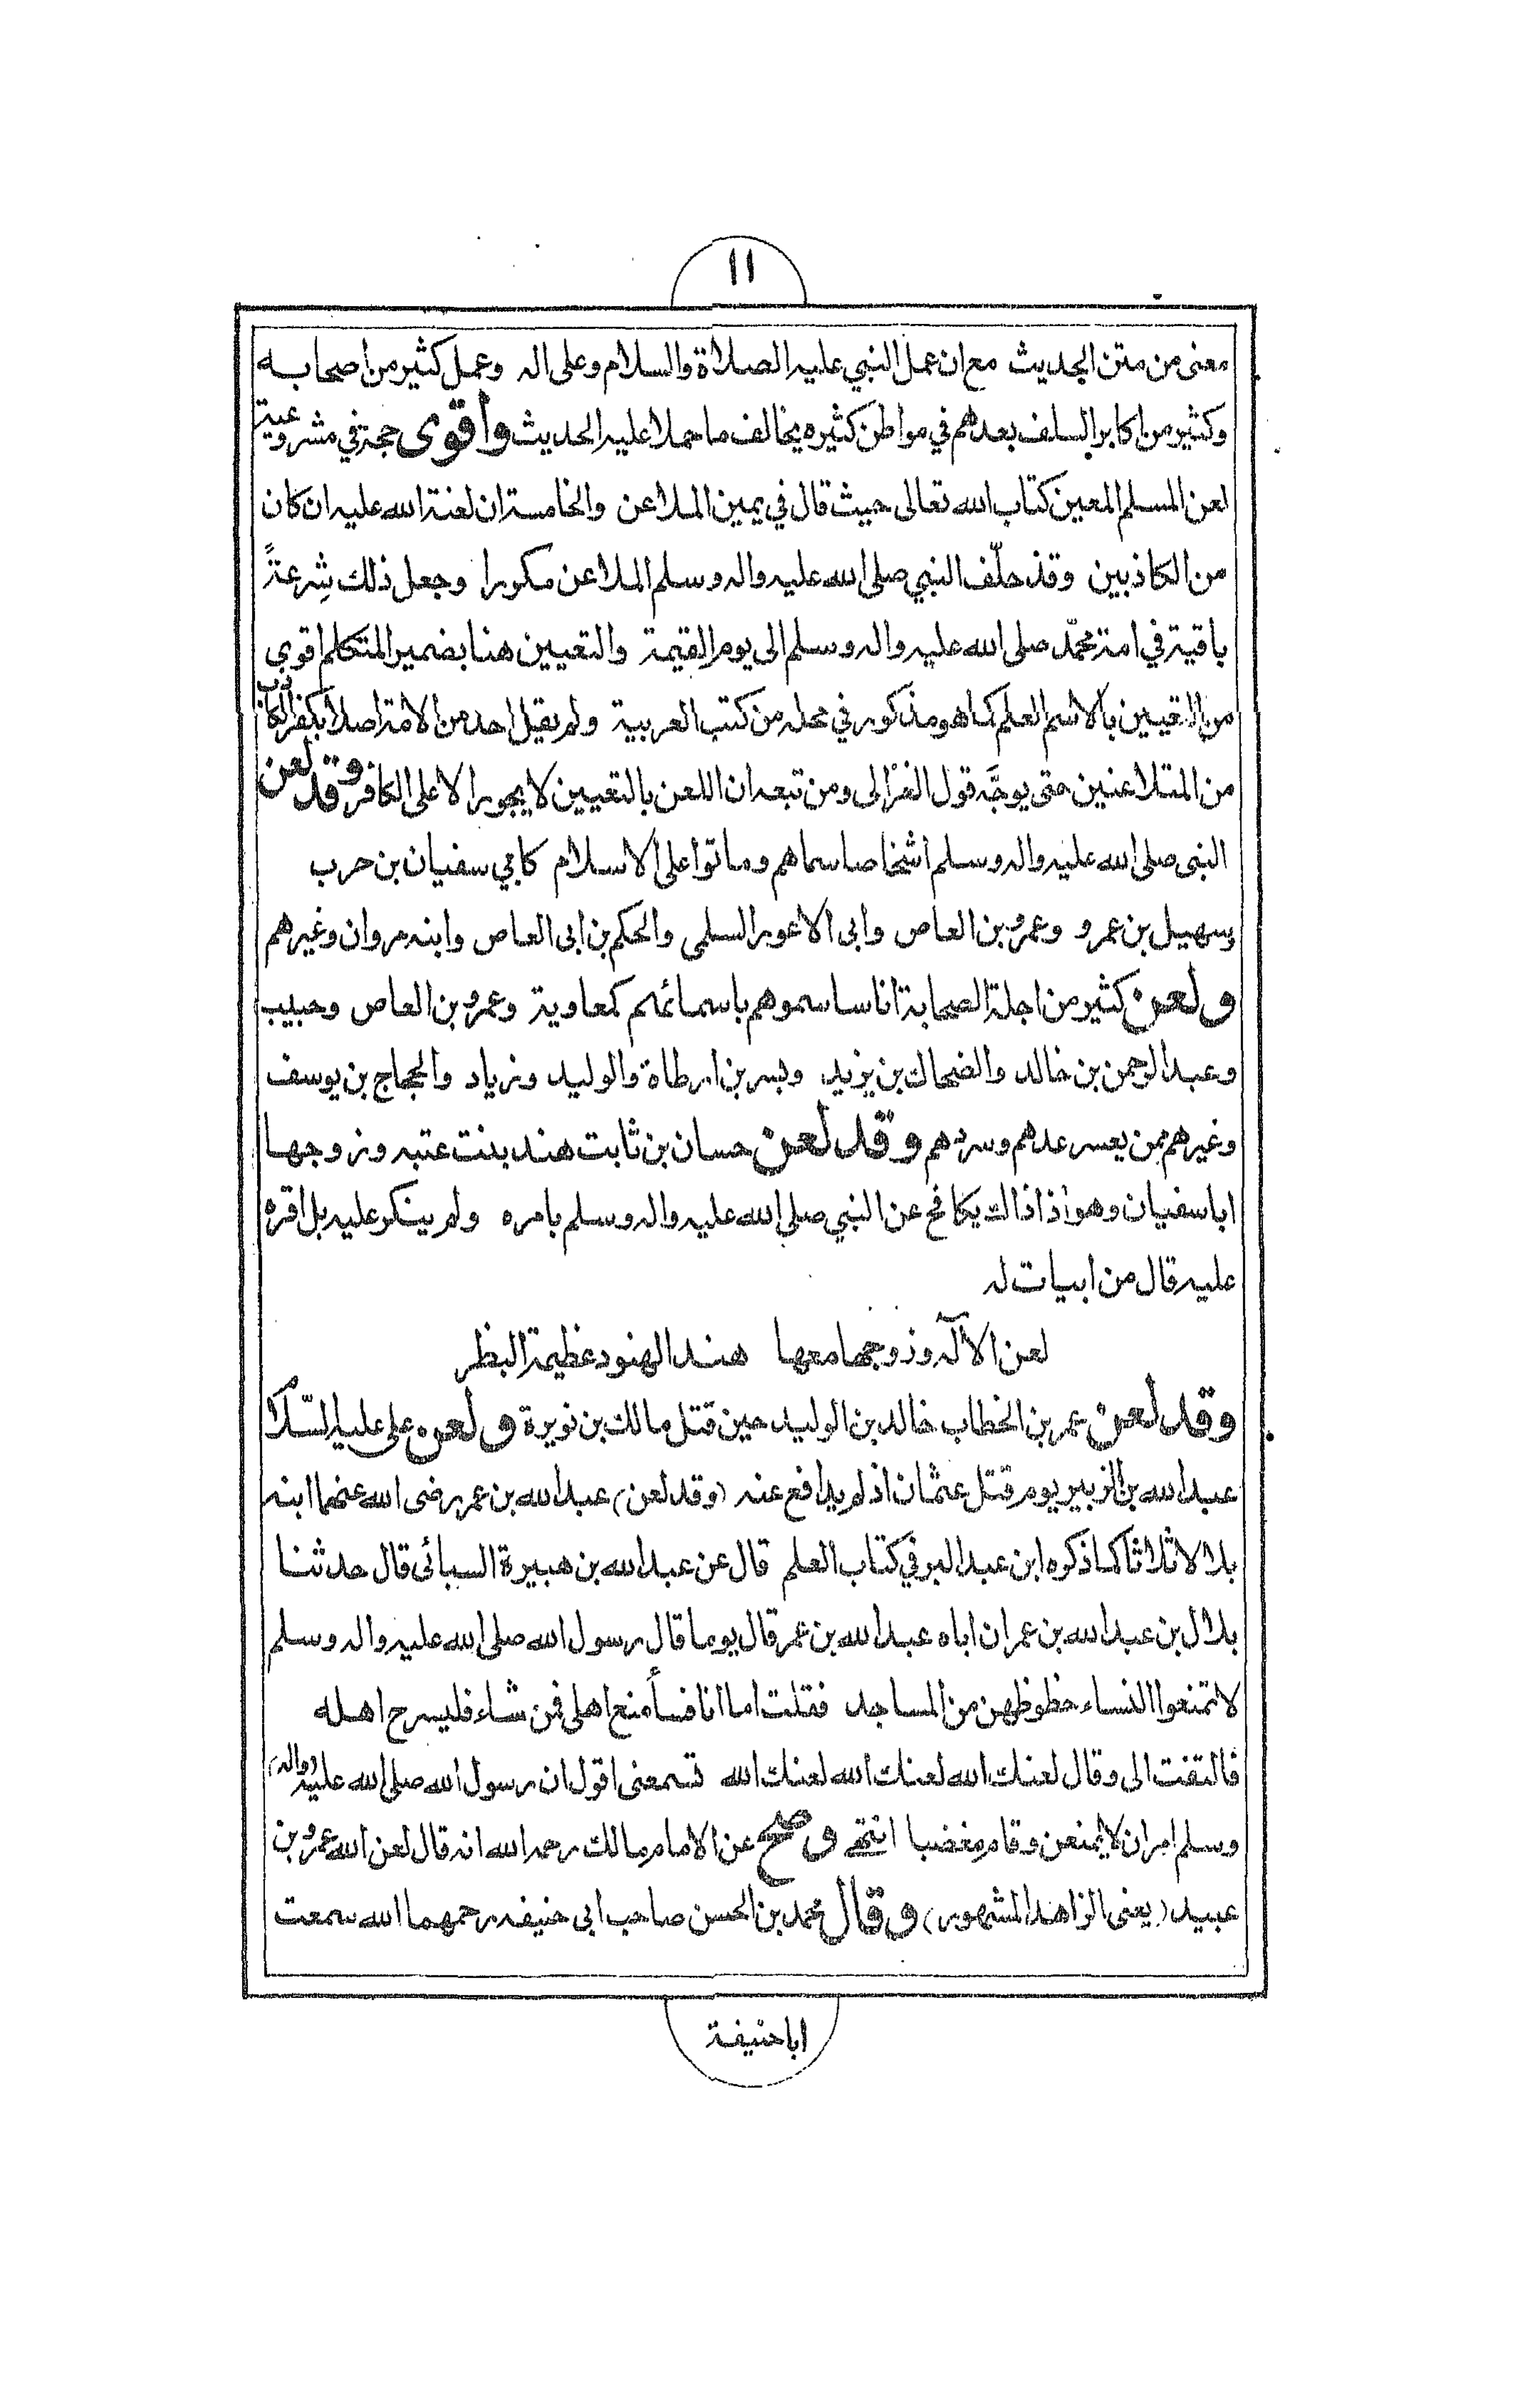 ١١
معنى من متن الحديث مع ان عمل النبي عليه الصلاة والسلام وعلى اله وعمل كثير من اصحابه
وكثير من اكابر السلف بعدهم في مواطن كثيره يخالف ما حملا عليه الحديث وأقوى حجة في مشروعية
لعن المسلم المعين كتاب الله تعالى حيث قال في يمين الملاعن والخامسة ان لعنة الله عليه ان كان
من الكاذبين وقد حلّف النبي صلى الله عليه واله وسلم الملاعن مكررا وجعل ذلك شِرعةً
باقية في امة محمّد صلى الله عليه واله وسلم الى يوم القيمة والتعيين هنا بضمير المتكلم اقوى
من التعيين بالاسم العلم كما هو مذكور في محله من كتب العربية ولم يقل احد من الامة اصلا بكفر الكاذب
من المتلاعنين حتى يوجَّه قول الغزالى ومن تبعه ان اللعن بالتعيين لا يجوز الا على الكافر وقد لعن
النبى صلى الله عليه واله وسلم اشخاصا سماهم وماتوا على الاسلام كابي سفيان بن حرب
وسهيل بن عمرو وعمرو بن العاص وابى الاعور السلمى والحكم بن ابى العاص وابنه مروان وغيرهم
ولعن كثير من اجلة الصحابة اناسا سموهم باسمائهم كمعاوية وعمرو بن العاص وحبيب
وعبد الرحمن بن خالد والضحاك بن يزيد وبسر بن ارطاة والوليد وزياد والحجاج بن يوسف
وغيرهم ممن يعسر عدهم وسردهم وقد لعن حسان بن ثابت هند بنت عتبه وزوجها
ابا سفيان وهو اذ اذاك يكافح عن النبي صلى الله عليه واله وسلم بامره ولم ينكر عليه بل اقره
عليه قال من ابيات له
لعن الآله وزوجها معها هند الهنود عظيمة البظر
وقد لعن عمر بن الخطاب خالد بن الوليد حين قتل مالك بن نويرة ولعن على عليه السّلام
عبد الله بن الزبير يوم قتل عثمان اذ لم يدافع عنه (وقد لعن) عبد الله بن عمر رضى الله عنهما ابنه
بلالا ثلاثا كما ذكره ابن عبد البر في كتاب العلم قال عن عبد الله بن هبيرة السبائى قال حدثنا
بلال بن عبد الله بن عمر ان اباه عبد الله بن عمر قال يوما قال رسول الله صلى الله عليه واله وسلم
لا تمنعوا النساء حظوظهن من المساجد فقلت اما انا فسأمنع اهلى فمن شاء فليسرح اهله
فالتفت الى وقال لعنك الله لعنك الله لعنك الله تسمعنى اقول ان رسول الله صلى الله عليه (واله)
وسلم امر ان لا يمنعن وقام مغضبا انتهى وصح عن الامام مالك رحمه الله انه قال لعن الله عمرو بن
عبيد (يعنى الزاهد المشهور) وقال محمد بن الحسن صاحب ابى حنيفه رحمهما الله سمعت
ابا حنيفة